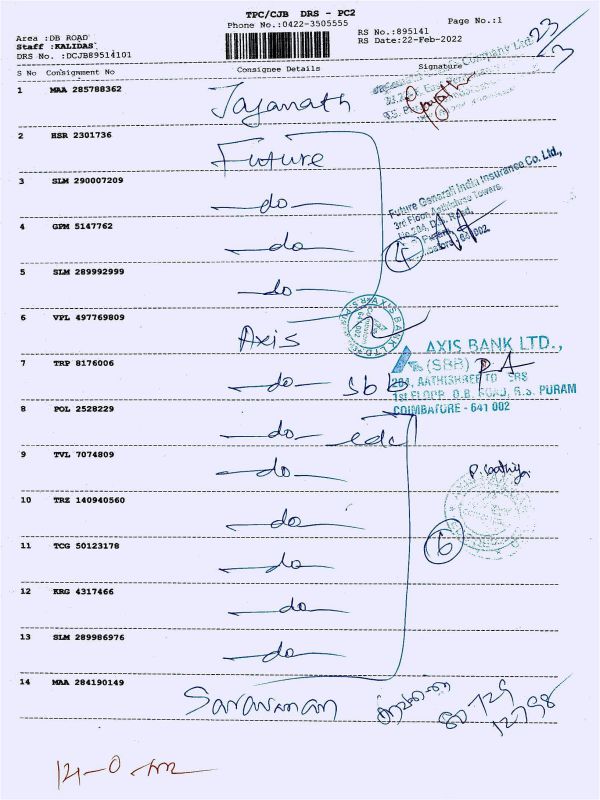 TPC/CJB DRS - PC2
Phone No.:0422-3505555
Page No.:1
Area :DB ROAD
Staff :KALIDAS
DRS No. :DCJB89514101
RS No.:895141
RS Date:22-Feb-2022
23/3
S No Consignment No Consignee Details Signature
1 MAA 285788362 Jaganath
2 HSR 2301736 Future
3 SLM 290007209 -do-
Future Generali India Insurance Co. Ltd.,
3rd Floor, Aathishree Towers,
4 GPM 5147762 -do- 4
5 SLM 289992999 -do-
6 VPL 497769809 Axis
AXIS BANK LTD.,
(SBB)
7 TRP 8176006 -do- Sbb
204, AATHISHREE TO ERS
1st FLOOR, D.B. ROAD, R.S. PURAM
COIMBATORE - 641 002
8 POL 2528229 -do- edc
9 TVL 7074809 -do-
P. Sathiya
10 TRZ 140940560 -do-
11 TCG 50123178 -do- 6
12 KRG 4317466 -do-
13 SLM 289986976 -do-
14 MAA 284190149 Saravanan